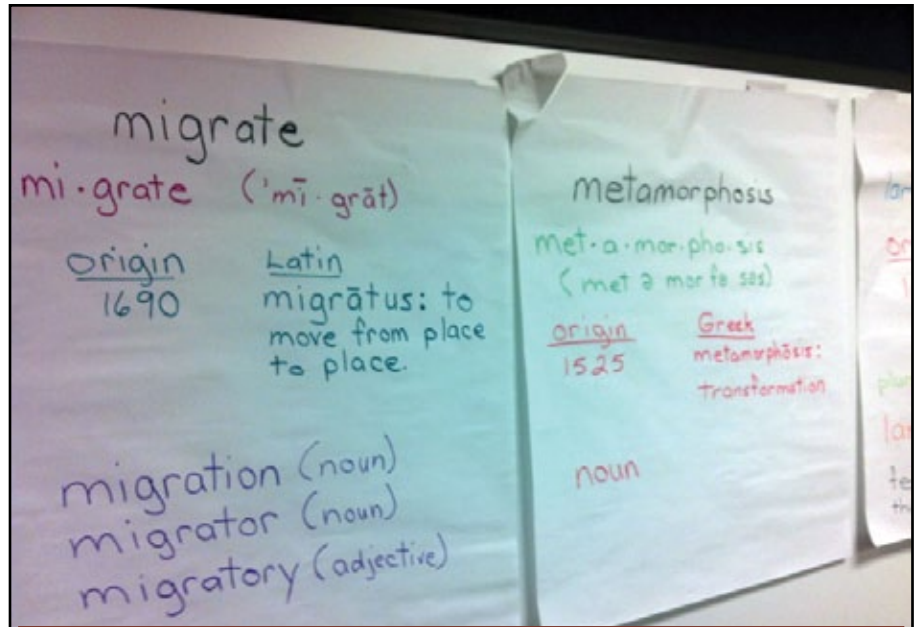 migrate
mi·grate ('mī·grāt)
origin
1690
Latin
migrātus: to
move from place
to place.
migration (noun)
migrator (noun)
migratory (adjective)
metamorphosis
met·a·mor·pho·sis
(met ə mor fə səs)
origin
1525
Greek
metamorphōsis:
transformation
noun